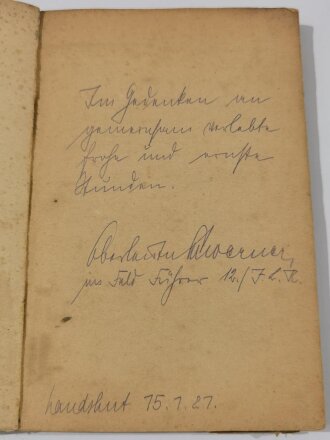 Im Gedenken an
gemeinsam verlebte
frohe und ernste
Stunden.
Oberleutn
im Feld Führer 12./
Landshut 15.1.21.